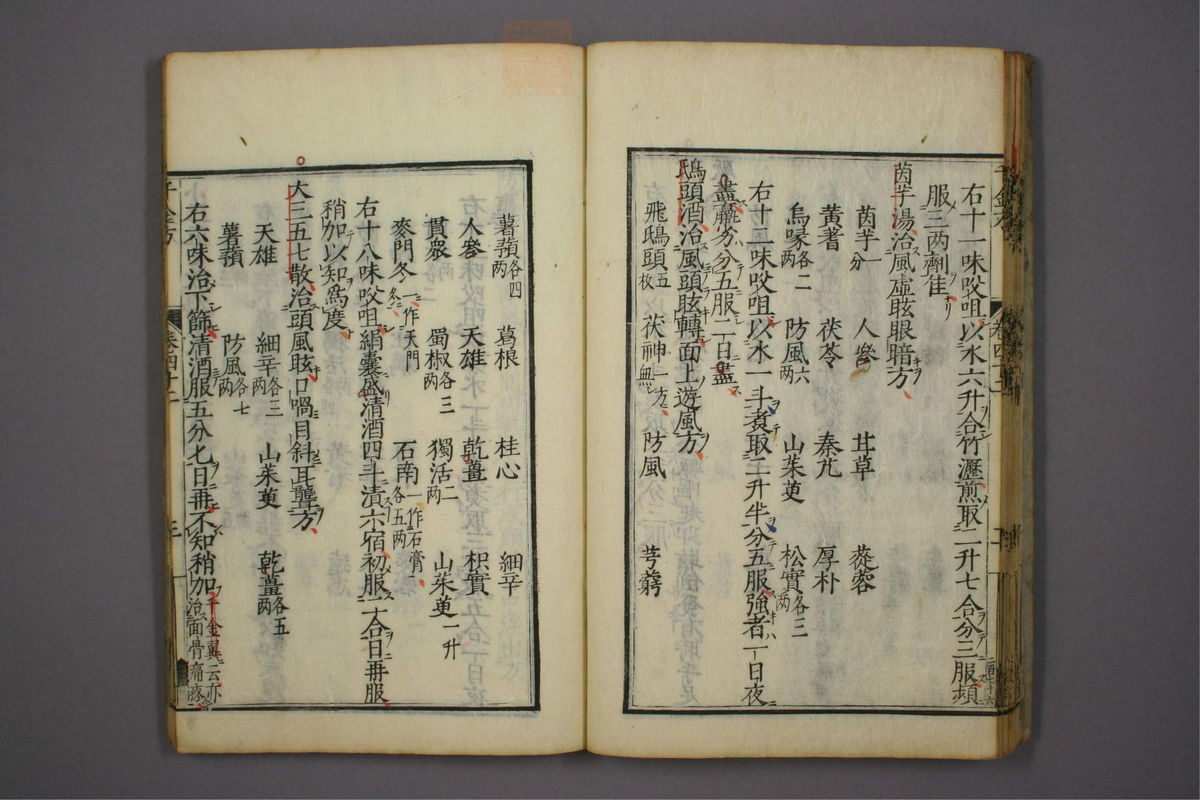 右十一味㕮咀以水六升合竹瀝煎取二升七合分三服頻
服三両劑佳
茵芋湯治風虛眩眼暗方
茵芋一分 人參 甘草 蓯蓉
黃耆 茯苓 秦艽 厚朴
烏喙各二両 防風六両 山茱萸 松實各三両
右十二味㕮咀以水一斗煮取二升半分五服強者一日夜
盡羸劣分五服二日盡
鴟頭酒治風頭眩轉面上遊風方
飛鴟頭五枚 茯神一方無 防風 芎藭
薯蕷各四両 葛根 桂心 細辛
人參 天雄 乾薑 枳實
貫衆 蜀椒各三両 獨活二両 山茱萸一升
麥門冬一作天門冬 石南一作石膏各五両
右十八味㕮咀絹囊盛清酒四斗漬六宿初服二合日再服
稍加以知爲度
大三五七散治頭風眩口喎目斜耳聾方
天雄 細辛各三両 山茱萸 乾薑各五両
薯蕷 防風各七両
右六味治下篩清酒服五分匕日再不知稍加千金翼云亦治面骨痛
千金方 卷四十二